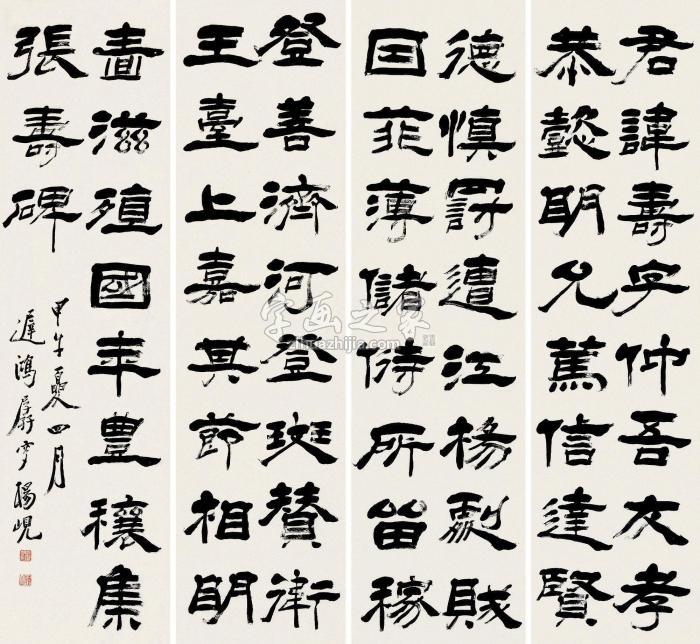 君諱壽字仲吾友孝
恭懿明允篤信達賢
德慎罰遭江楊劇賊
囯菲薄儲偫所留稼
登善濟河登斑贊衛
王臺上嘉其節相明
畫滋殖國年豐穰集
張壽碑
甲午夏四月
遲鴻孱守楊峴
字画之家
huazhijia.com